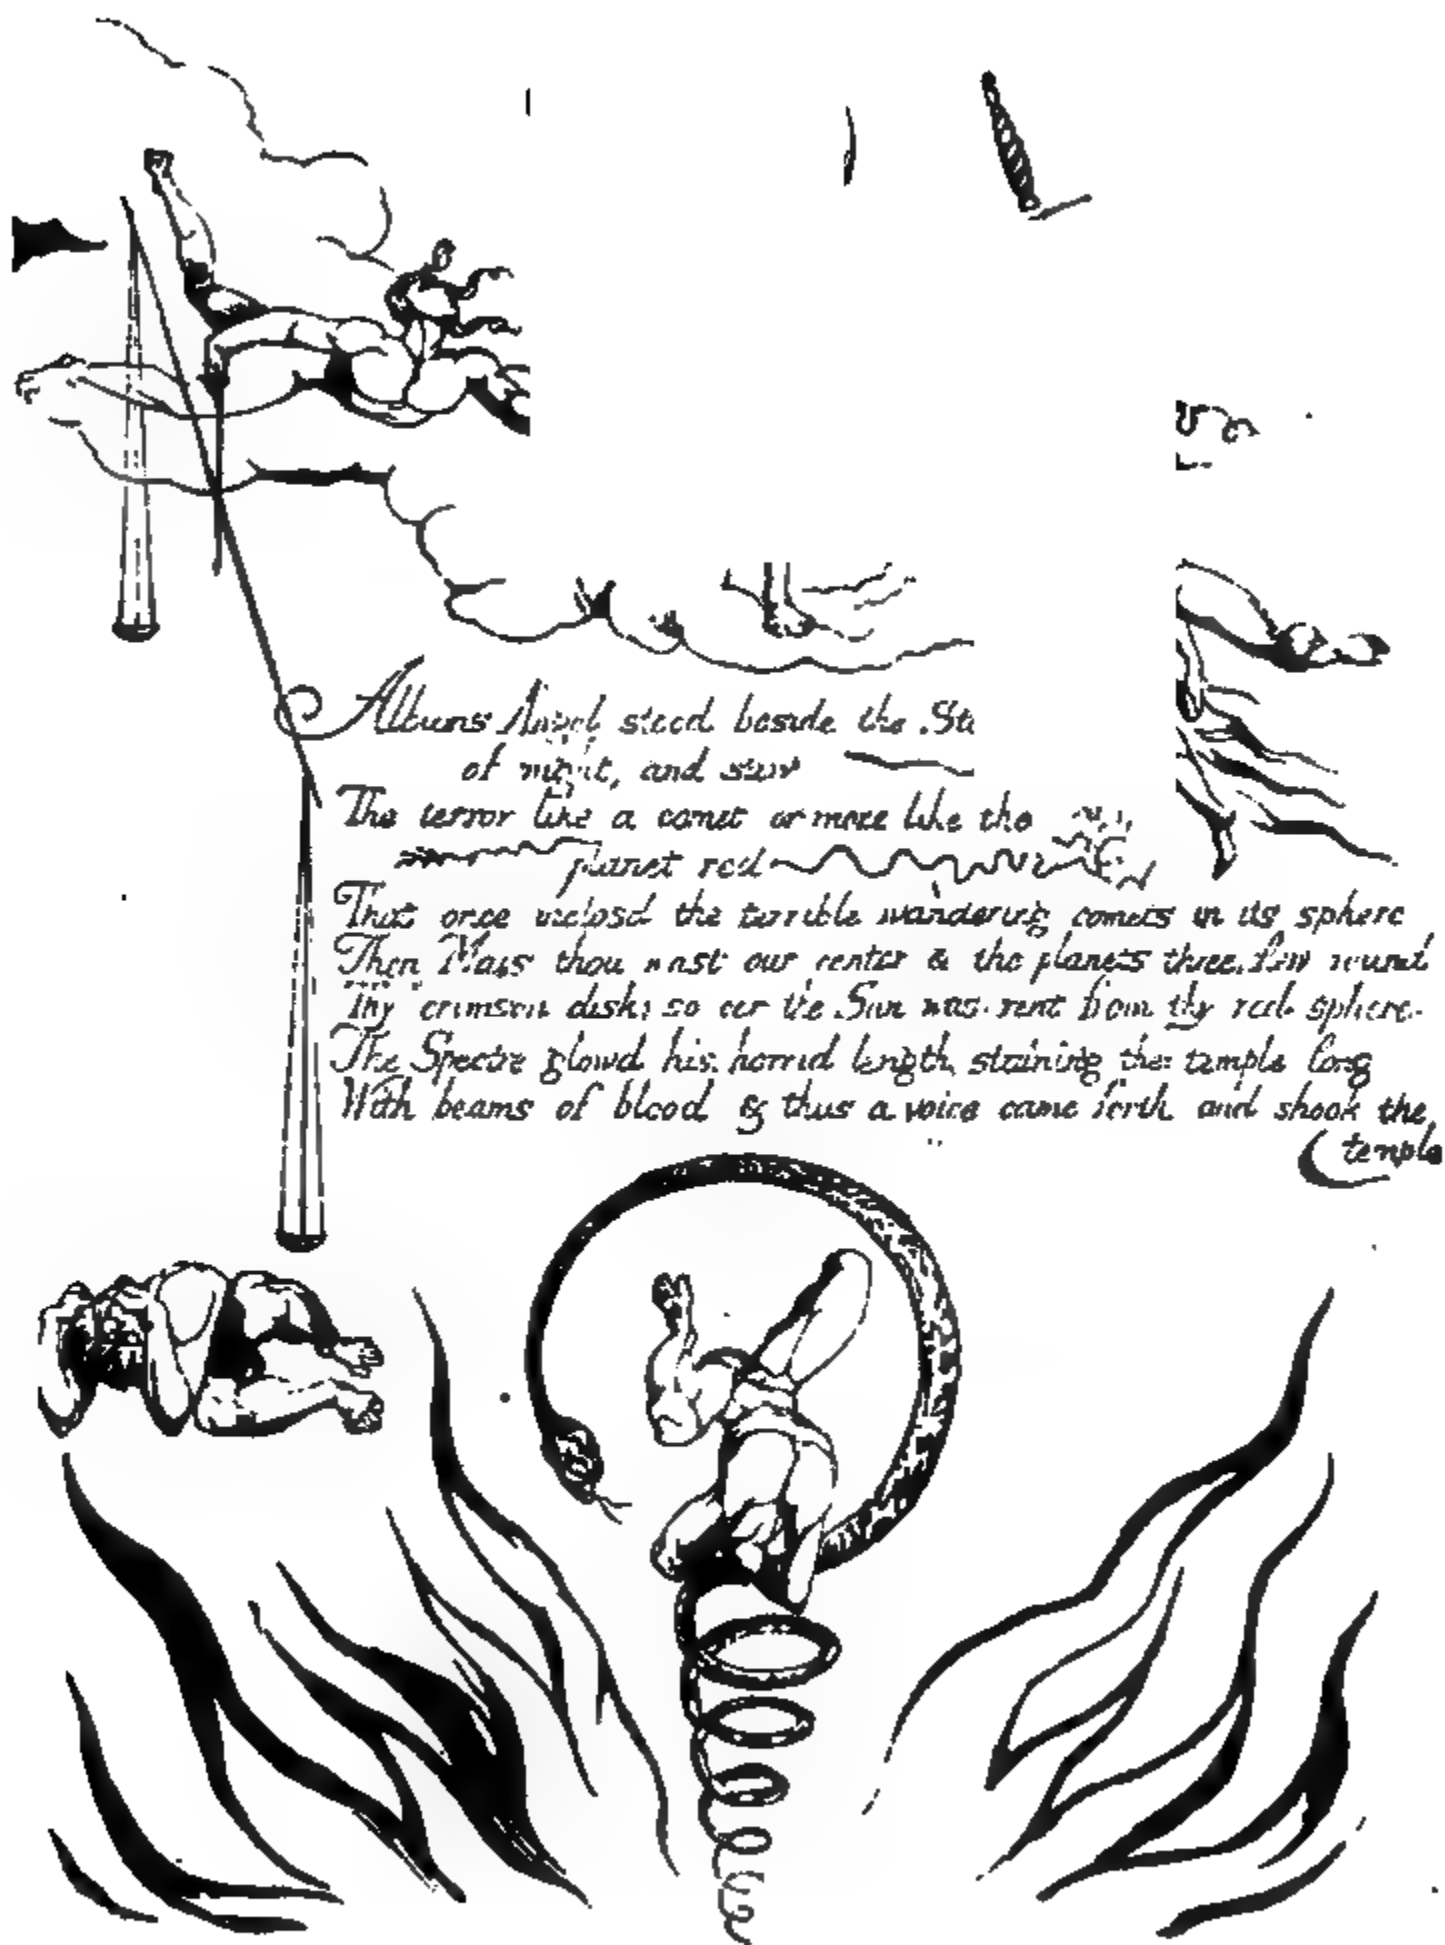 Albions Angel stood beside the Sto
of night, and saw
The terror like a comet or more like the
planet red
That once inclosd the terrible wandering comets in its sphere
Then Mars thou wast our center & the planets three flew round
Thy crimson disk; so eer the Sun was rent from thy red sphere.
The Spectre glowd his horrid length staining the temple long
With beams of blood & thus a voice came forth and shook the
temple